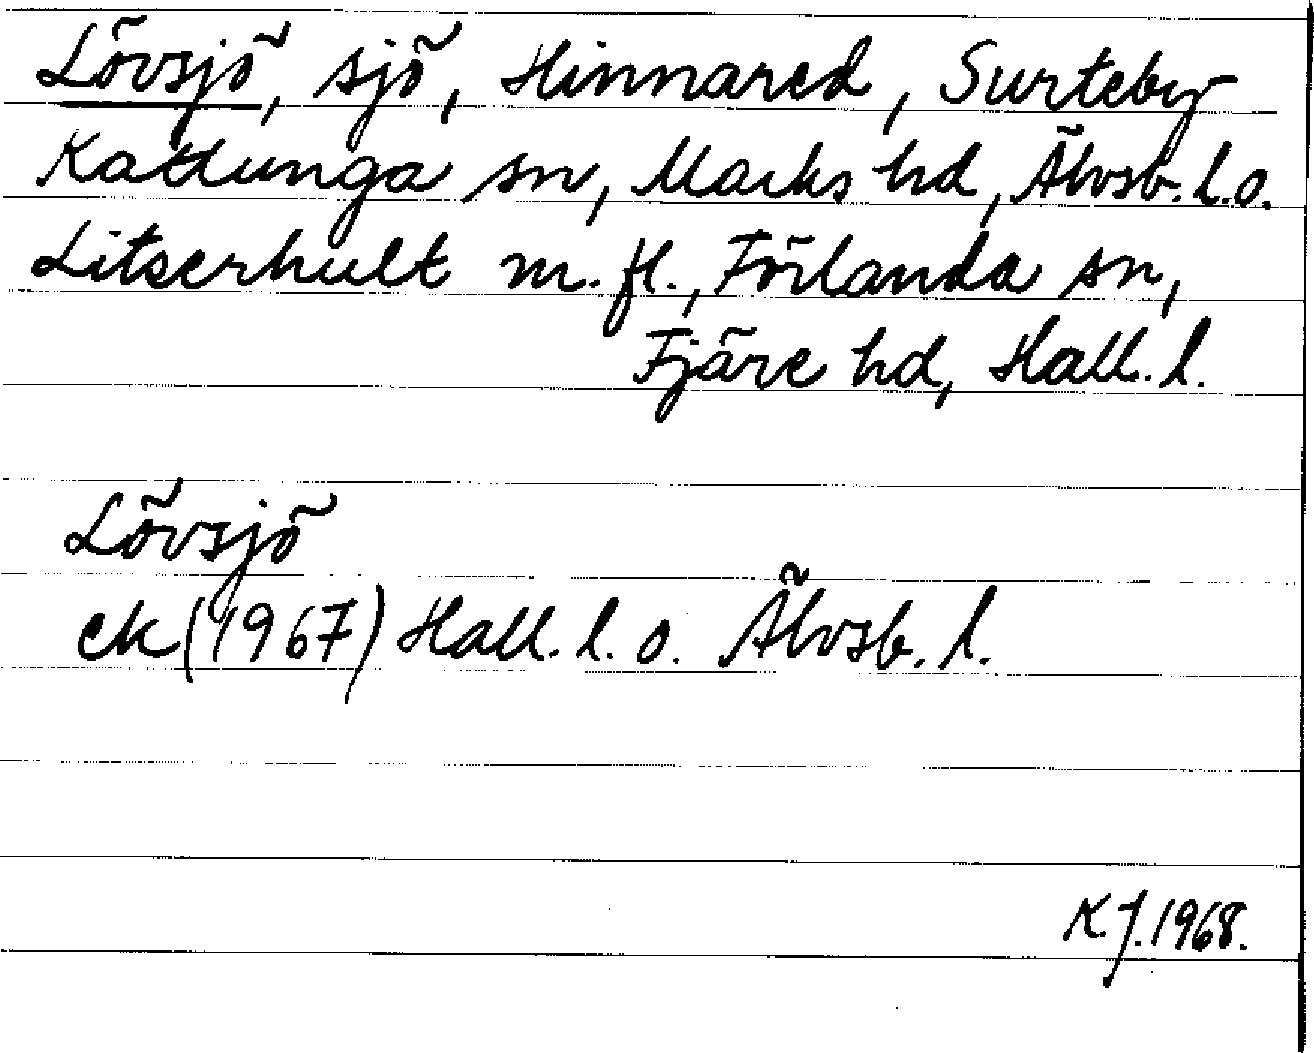 Lövsjö, sjö, Hinnared, Surteby
Kattunga sn, Marks hd, Älvsb. l. o.
Litserhult m. fl., Förlanda sn,
Fjäre hd, Hall. l.
Lövsjö
ek (1967) Hall. l. o. Älvsb. l.
K. J. 1968.